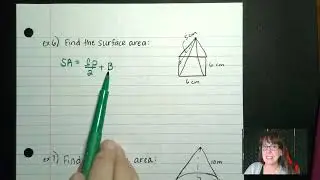 ex 6) Find the surface area:
5 cm
SA = lp/2 + B
6 cm
6 cm
ex 7) Find area:
10m